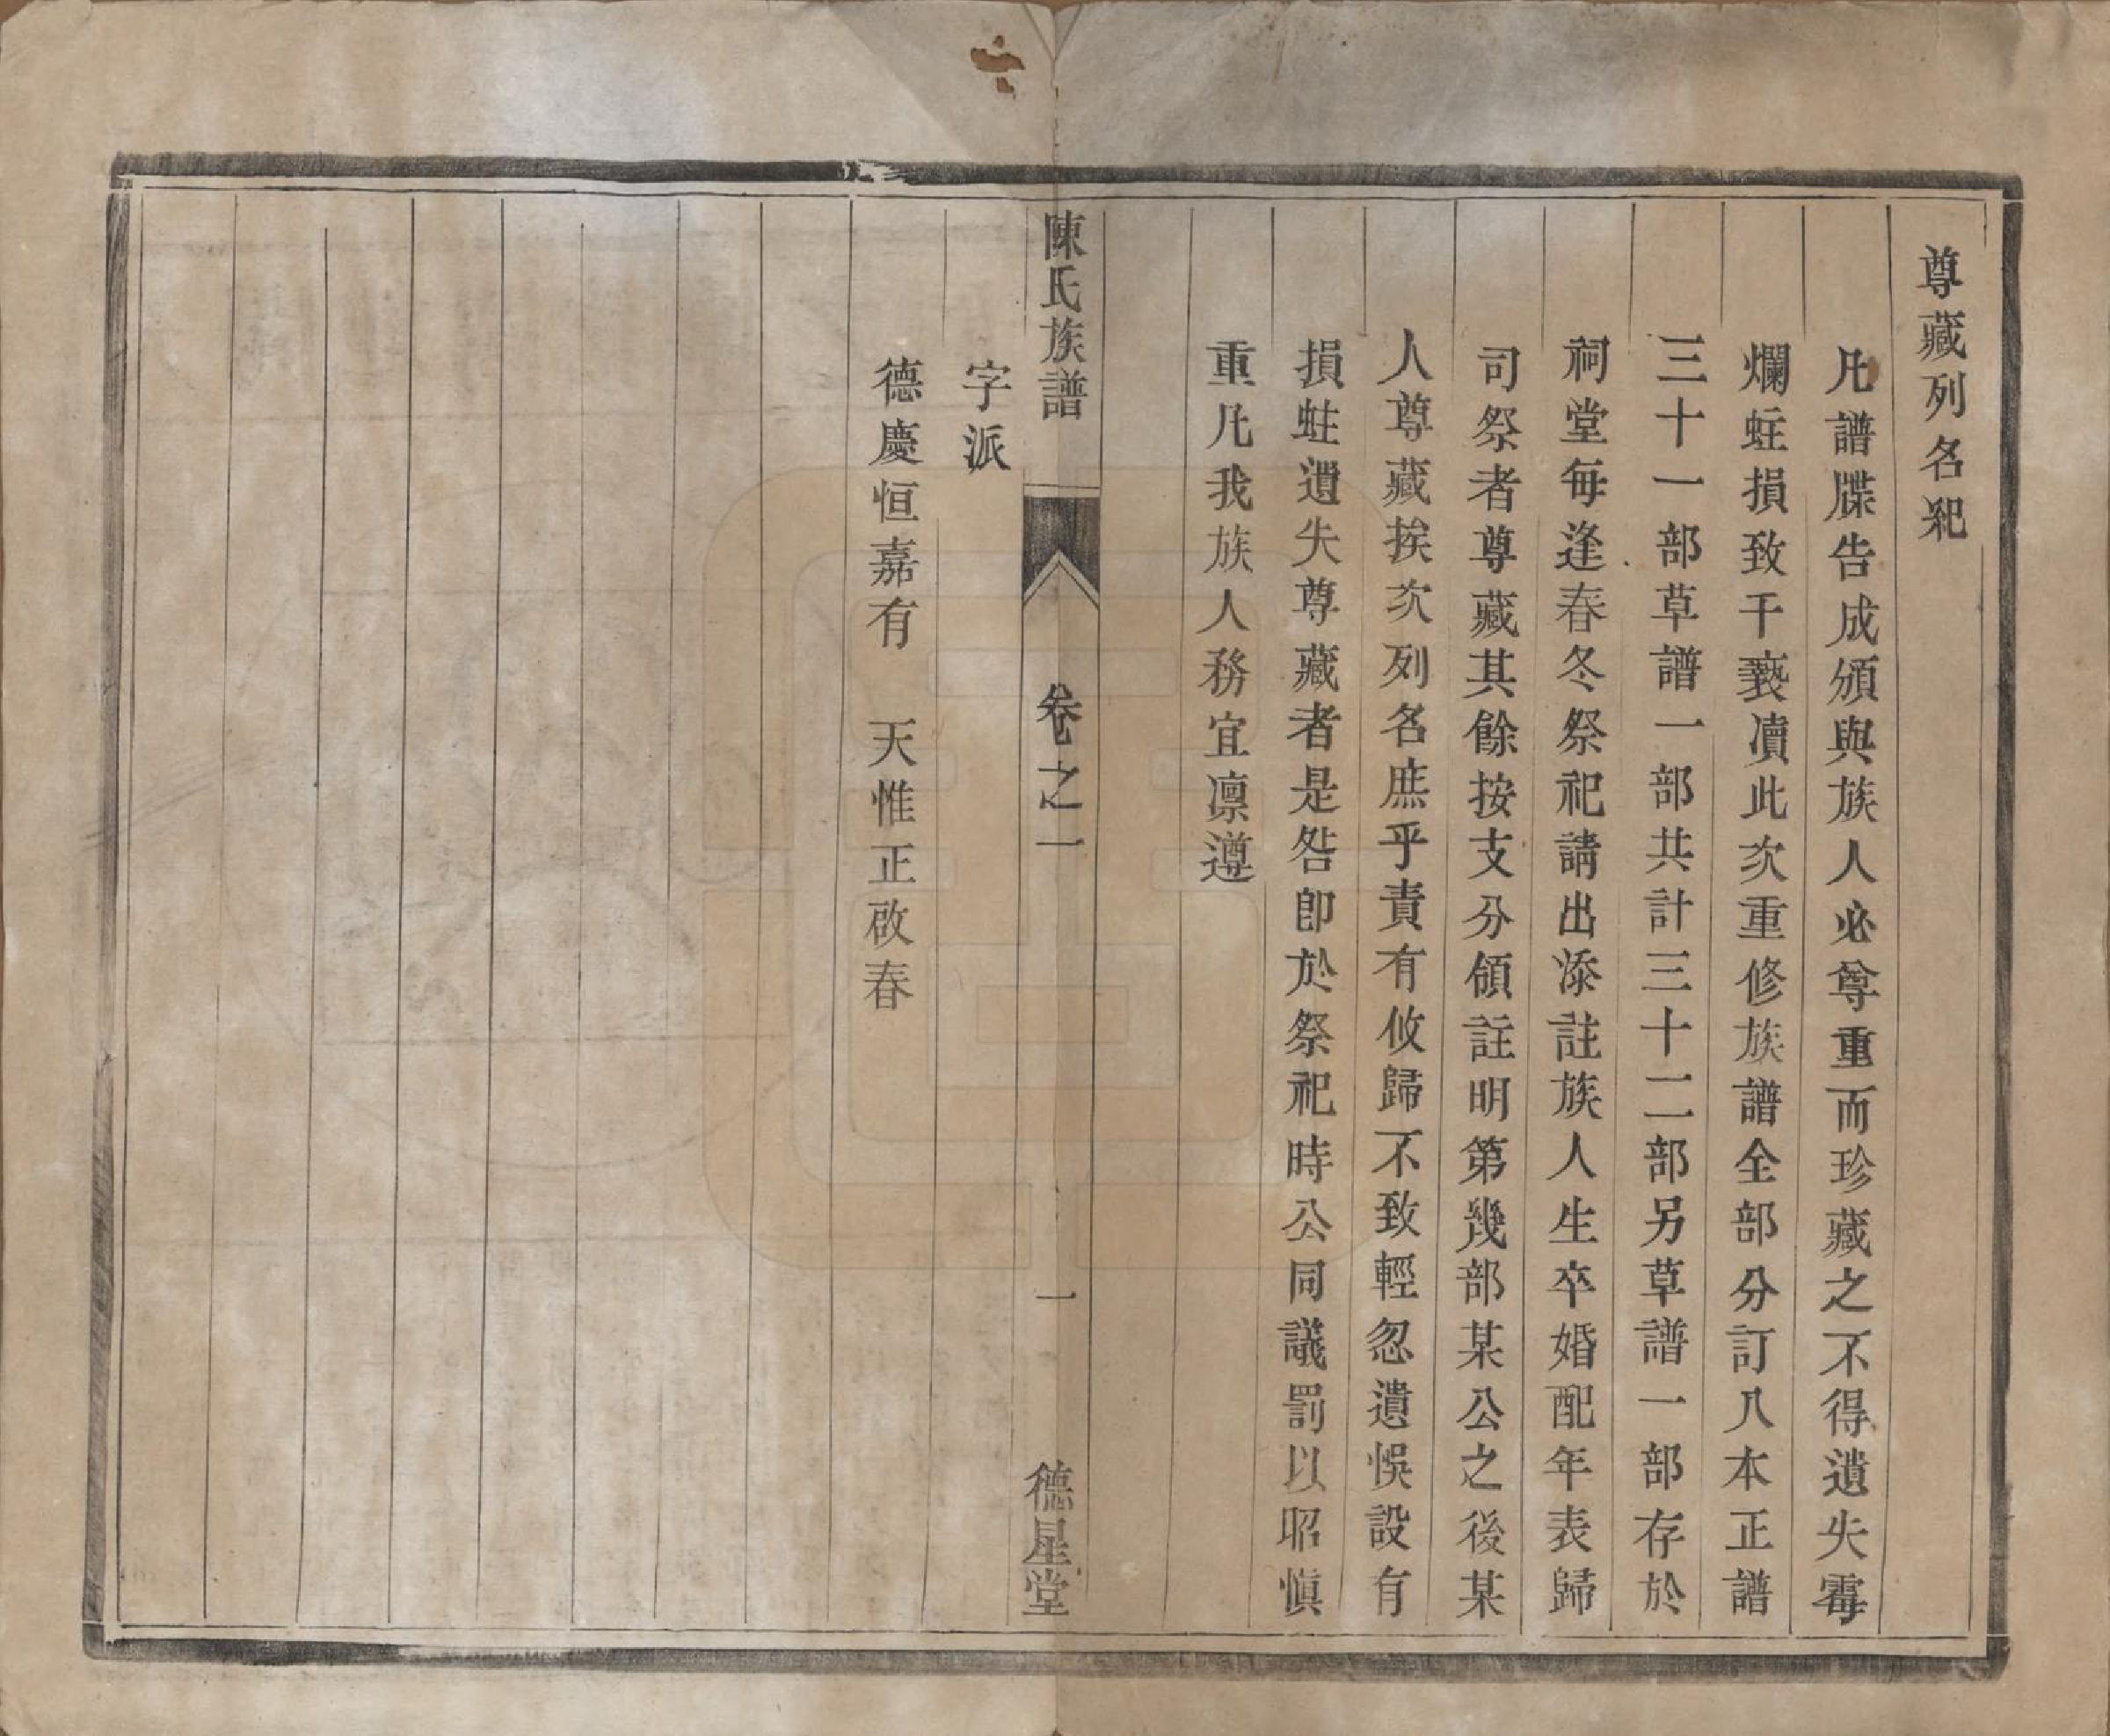 尊藏列名祀
凡譜牒告成頒與族人必尊重而珍藏之不得遺失霉
爛蛀損致干褻凟此次重修族譜全部分訂八本正譜
三十一部草譜一部共計三十二部另草譜一部存於
祠堂每逢春冬祭祀請出添註族人生卒婚配年表歸
司祭者尊藏其餘按支分領註明第幾部某公之後某
人尊藏挨次列名庶乎責有攸歸不致輕忽遺悞設有
損蛀遺失尊藏者是咎卽於祭祀時公同議罰以昭慎
重凡我族人務宜凛遵
陳氏族譜 卷之一 一 德星堂
字派
德慶恒嘉有 天惟正啟春